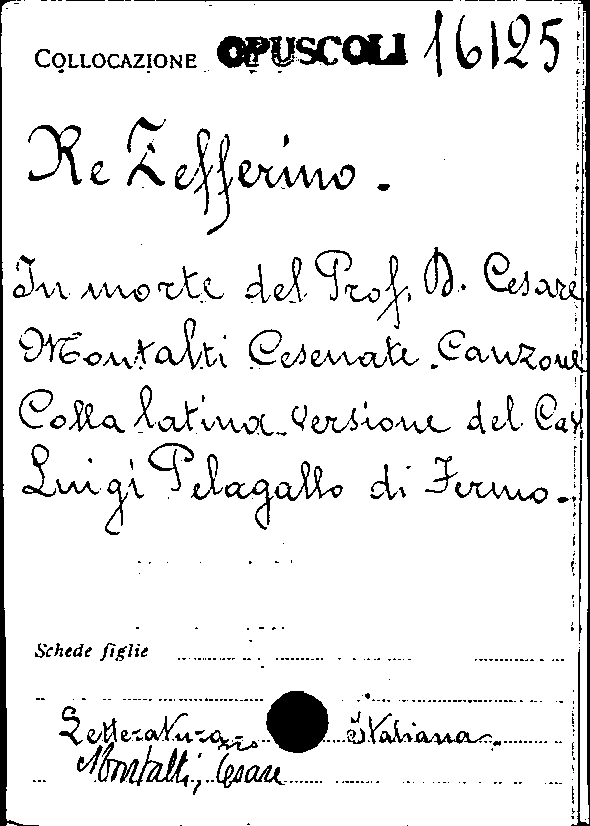 COLLOCAZIONE OPUSCOLI 16125
Re Zefferino.
In morte del Prof. D. Cesare
Montalti Cesenate. Canzone
Colla latina versione del Cav
Luigi Pelagallo di Fermo.
Schede figlie
Letteratura Italiana.
Montalti, Cesare